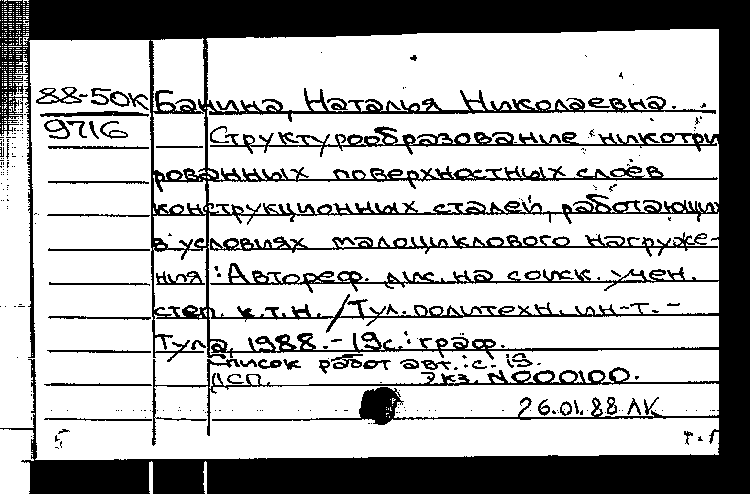 88-50К Банина, Наталья Николаевна.
9716 Структурообразование никотри
рованных поверхностных слоев
конструкционных сталей, работающи
в условиях малоциклового нагруже-
ния : Автореф. дис. на соиск. учен.
степ. к.т.н. / Тул. политехн. ин-т. -
Тула, 1988. - 19с.: граф.
Список работ авт.: с. 19.
ДСП. Экз. N000100.
26.01.88 ЛК
5